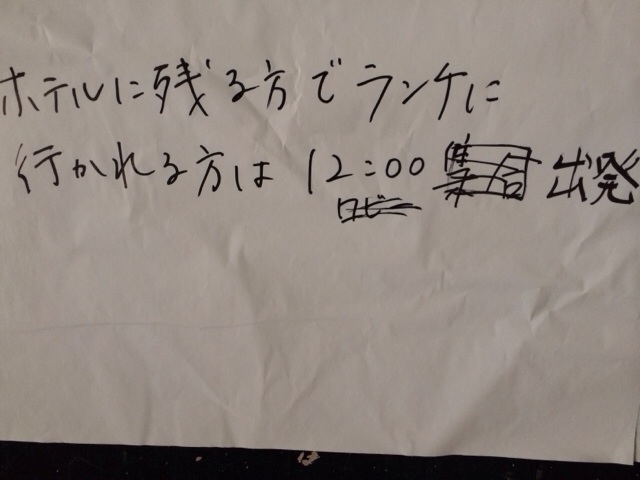 ホテルに残る方でランチに
行かれる方は 12:00 集合 出発
ロビー